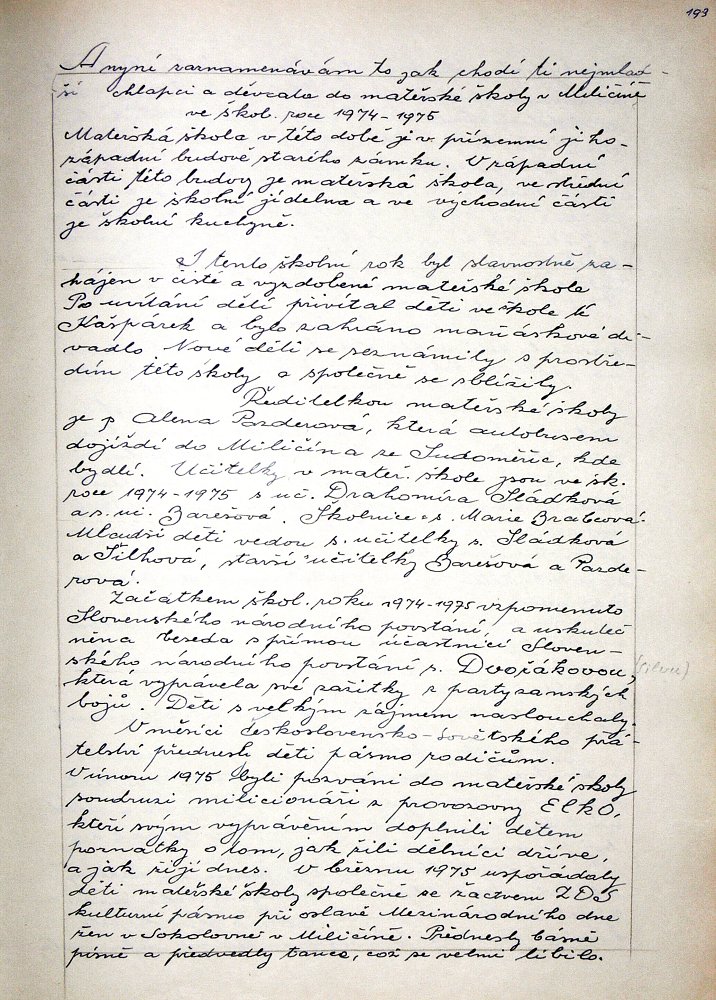 193
A nyní zaznamenávám to jak chodí ti nejmlad-
ší chlapci a děvčata do mateřské školy v Miličíně
ve škol. roce 1974-1975
Mateřská škola v této době je v přízemní jiho-
západní budově starého zámku. V západní
části této budovy je mateřská škola, ve střední
části je školní jídelna a ve východní části
je školní kuchyně.
I tento školní rok byl slavnostně za-
hájen v čisté a vyzdobené mateřské škole
Po uvítání dětí přivítal děti ve škole též
Kašpárek a bylo zahráno maňáskové di-
vadlo. Nové děti se seznámily s prostře-
dím této školy a společně se sblížily.
Ředitelkou mateřské školy
je p Alena Pazderová, která autobusem
dojíždí do Miličína ze Sudoměřic, kde
bydlí. Učitelky v mateř. škole jsou ve šk.
roce 1974-1975 s uč. Drahomíra Sládková
a s. uč. Barešová. Školnice s. Marie Brabcová.
Mladší děti vedou s. učitelky s. Sládková
a Šilhová, starší učitelky Barešová a Pazde-
rová.
Začátkem škol. roku 1974-1975 vzpomenuto
Slovenského národního povstání, a uskuteč
něna beseda s přímou účastnicí Sloven-
ského národního povstání s. Dvořákovou,
která vyprávěla své zážitky z partyzánských
bojů. Děti s velkým zájmem naslouchaly.
V měsíci československo-sovětského přá-
telství přednesli děti pásmo rodičům.
V únoru 1975 byli pozváni do mateřské školy
soudruzi milicionáři z provozovny ELKO,
kteří svým vyprávěním doplnili dětem
poznatky o tom, jak žili dělníci dříve,
a jak žijí dnes. V březnu 1975 uspořádaly
děti mateřské školy společně se žactvem ZDŠ
kulturní pásmo při oslavě Mezinárodního dne
žen v Sokolovně v Miličíně. Přednesly básně
písně a předvedly tance, což se velmi líbilo.